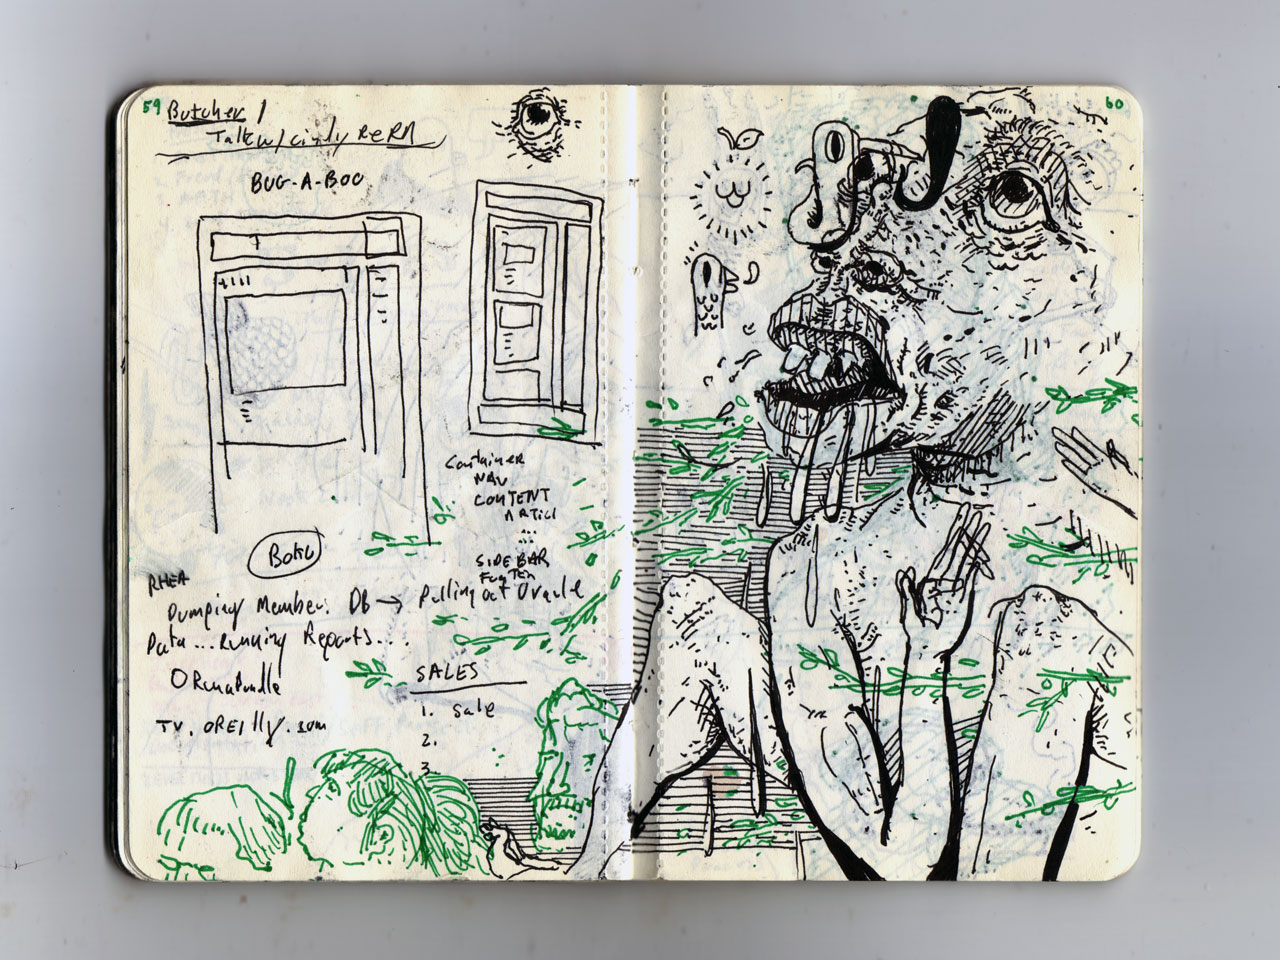 59 Butcher /
Talk w/ cindy ReRM
BUG-A-BOO
Container
NAV
CONTENT
ARTicl
...
...
SIDEBAR
Boku
RHEA
Dumping Member DB → Pulling out Oracle
Data ... Running Reports...
SALES
1. sale
2.
3.
TV.OREILLY.com
60